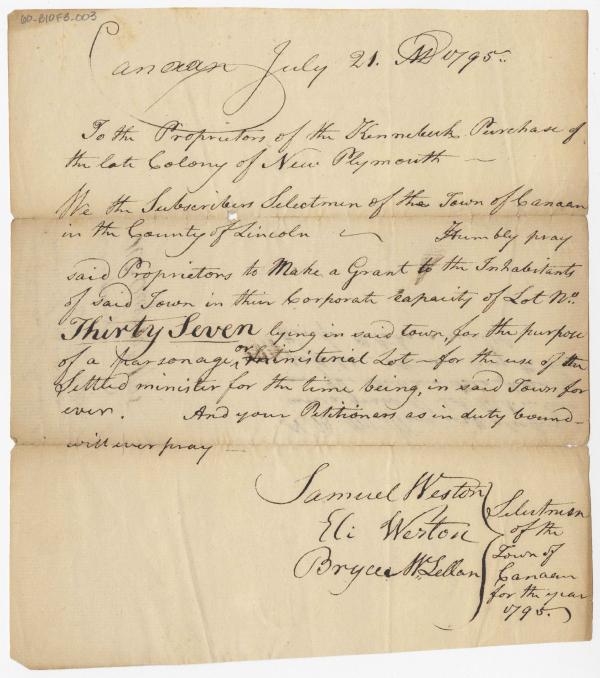 60-B10F3-003
Canaan July 21. AD 1795..
To the Proprietors of the Kennebeck Purchase of
the late Colony of New Plymouth —
We the Subscribers Selectmen of the Town of Canaan
in the County of Lincoln — Humbly pray
said Proprietors to Make a Grant to the Inhabitants
of said Town in their Corporate capacity of Lot No.
Thirty Seven lying in said town, for the purpose
of a parsonage, or ministerial Lot – for the use of the
Settled minister for the time being, in said Town for
ever. And your Petitioners as in duty bound –
will ever pray —
Samuel Weston
Eli Weston
Bryce McLellan
Selectmen
of the
Town of
Canaan
for the year
1795.